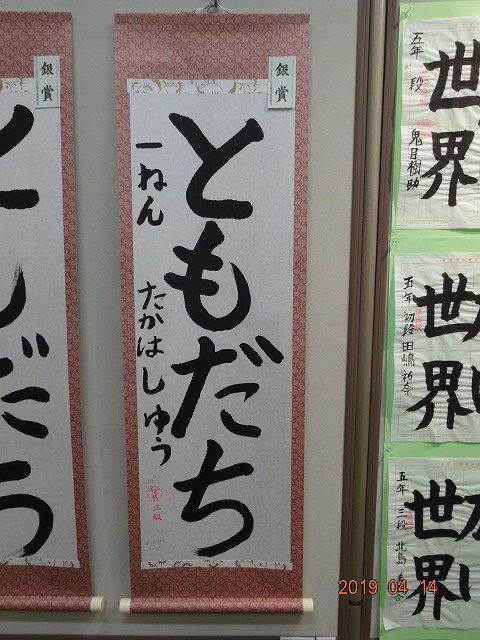 銀賞
ともだち
一ねん たかはし しゅう
三級
銀賞
世界
五年 段 鬼目樹助
世界
五年 初段 田嶋祐奈
世界
五年 三段 北島
2019 04 14